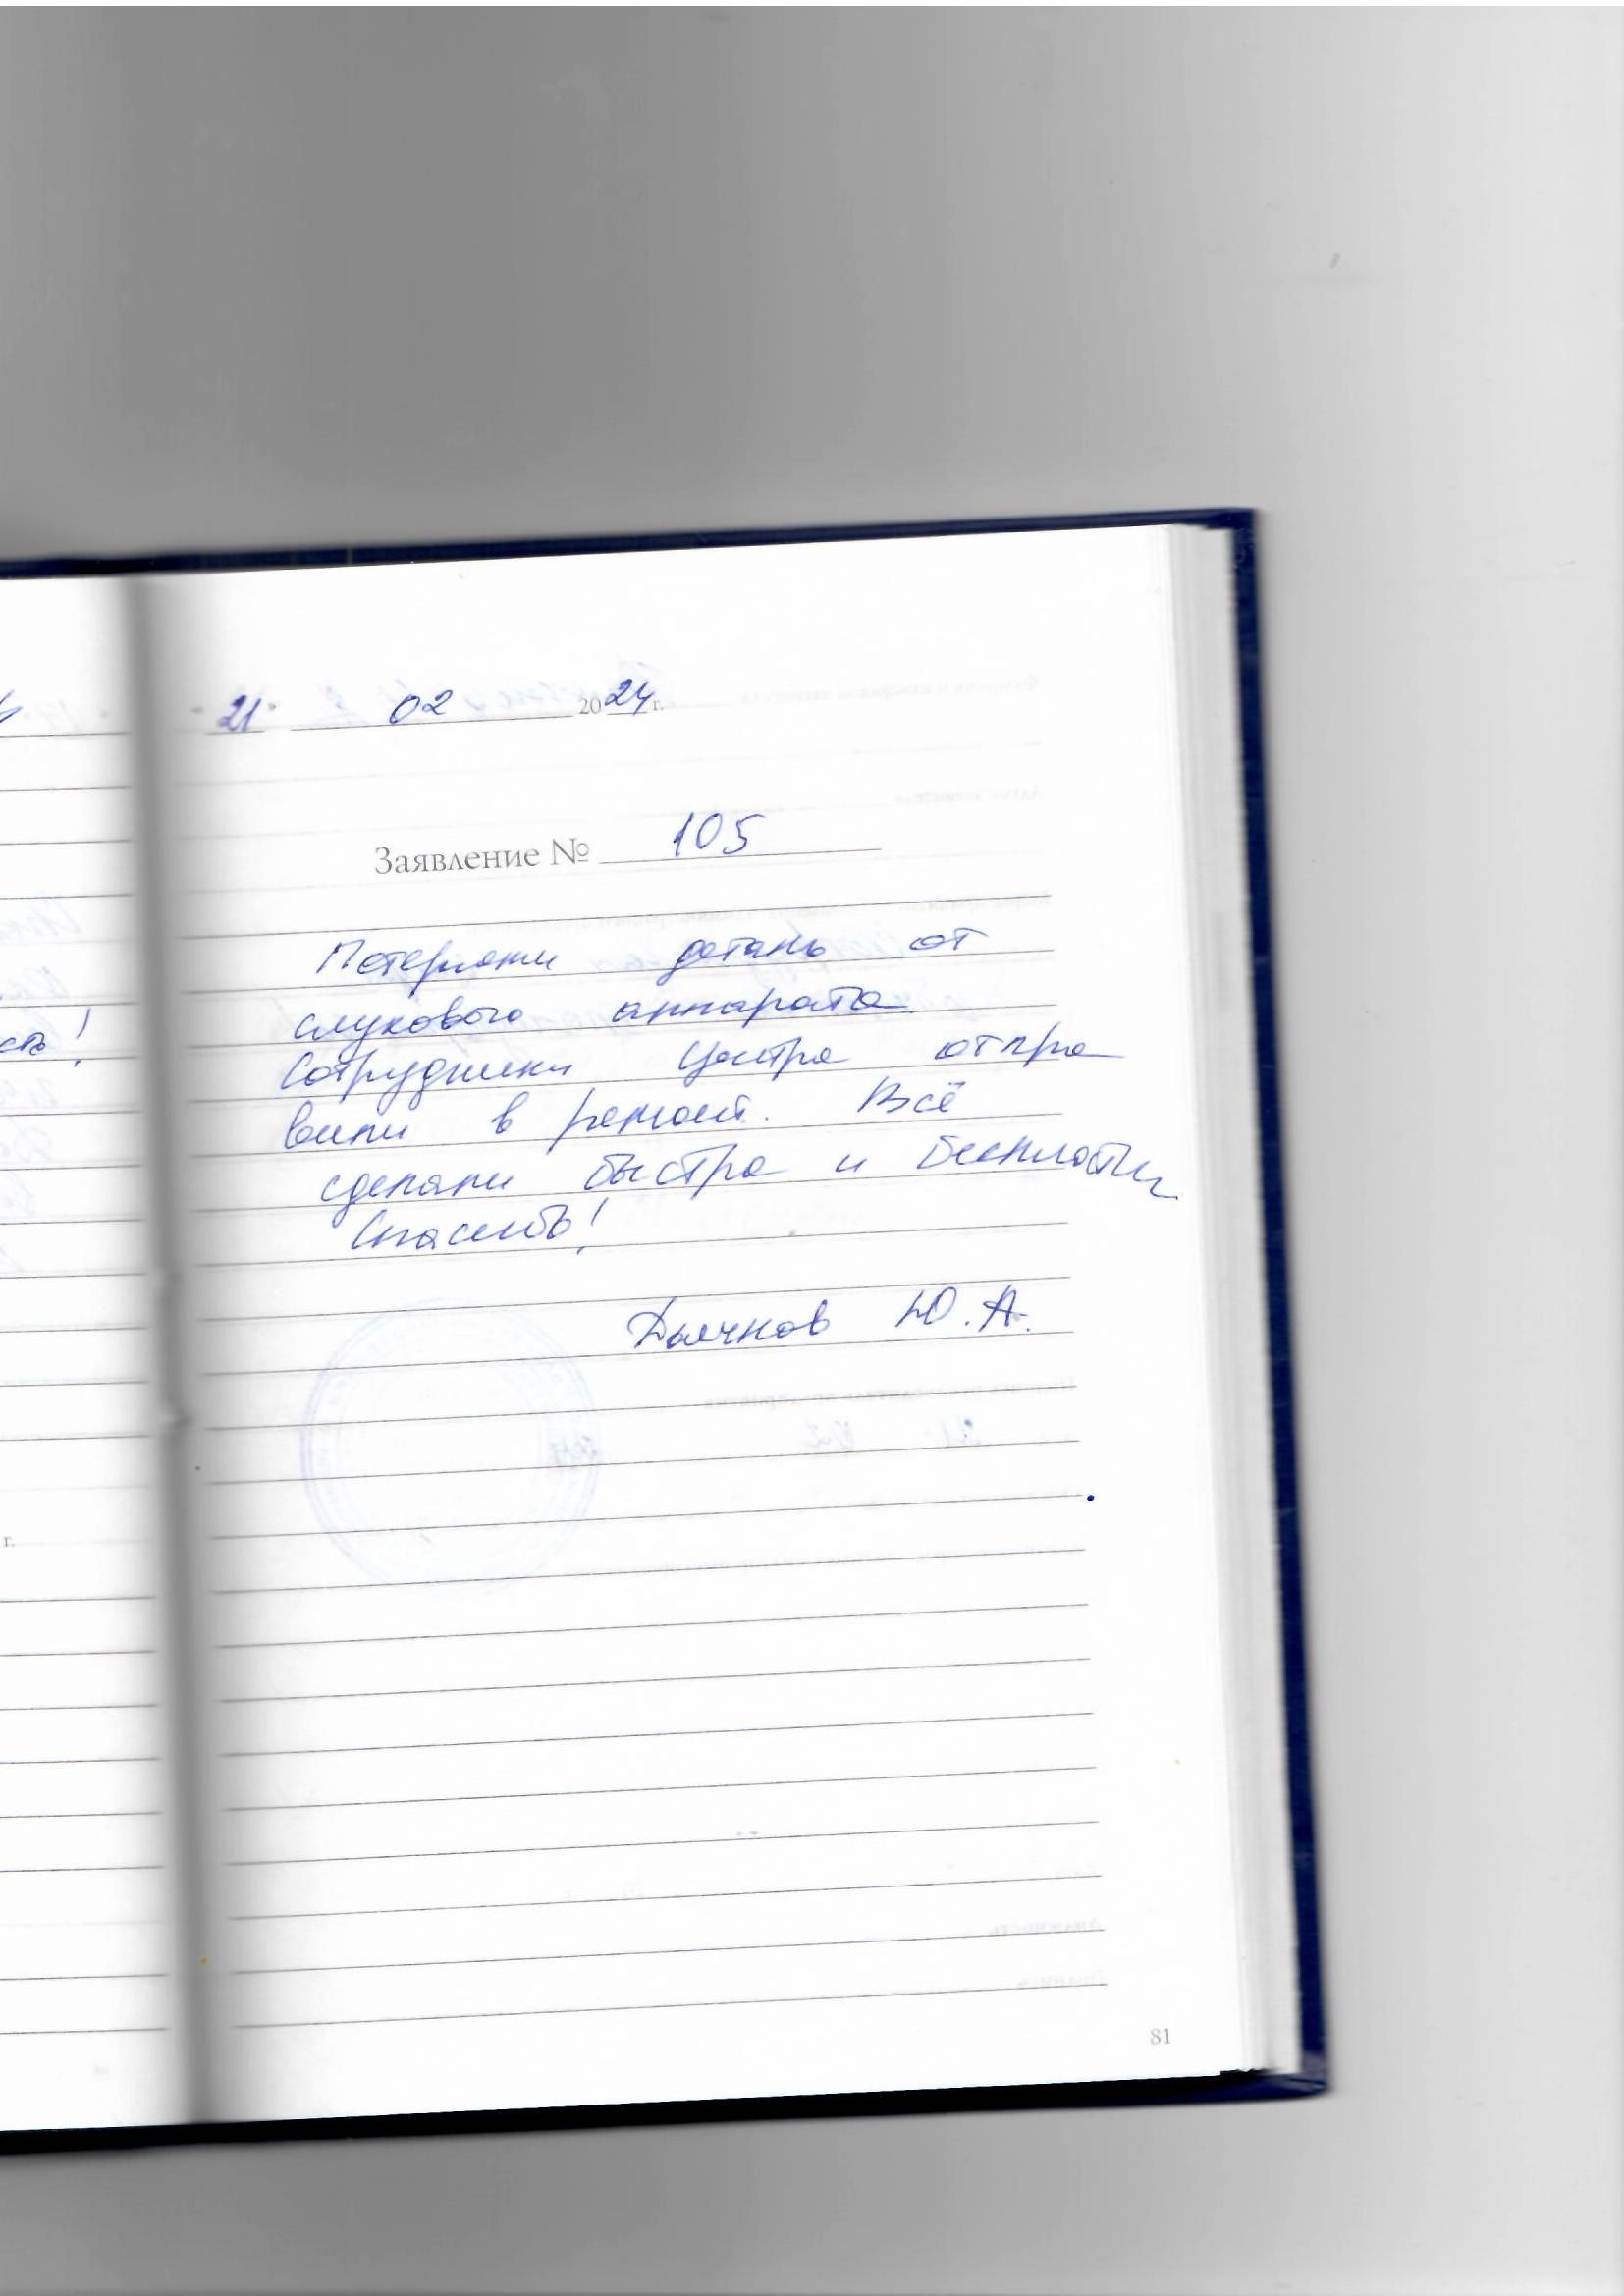 "21" 02 2024 г.
Заявление № 105
Потеряли деталь от
слухового аппарата
Сотрудники Центра отпра
вили в ремонт. Всё
сделали быстро и бесплатно
Спасибо!
Ю.А.
г.
81